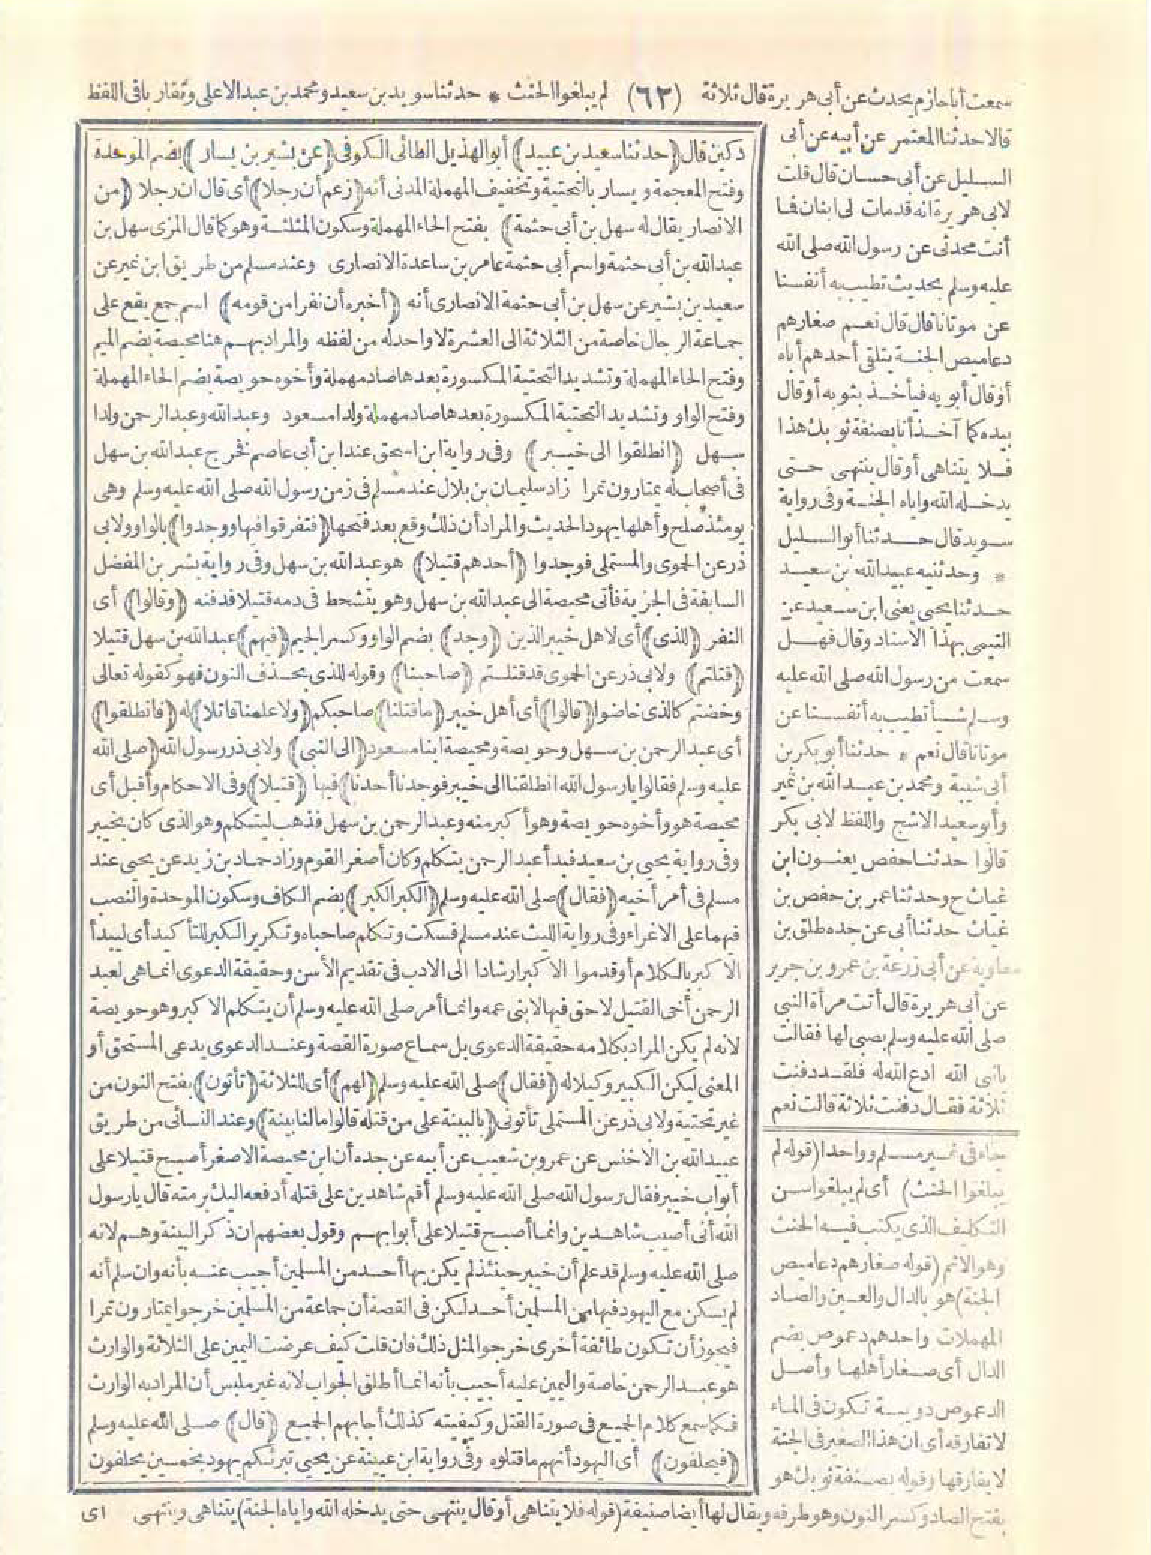 سمعت أبا حازم يحدث عن أبى هريرة قال ثلاثة (٦٣) لم يبلغوا الحنث * حدثنا سويد بن سعيد ومحمد بن عبد الاعلى وتقاربا فى اللفظ
قالا حدثنا المعتمر عن أبيه عن أبى
السليل عن أبى حسان قال قلت
لابى هريرة انه قد مات لى ابنان فما
أنت محدثى عن رسول الله صلى الله
عليه وسلم بحديث تطيب به أنفسنا
عن موتانا قال قال نعم صغارهم
دعاميص الجنة يتلقى أحدهم أباه
أو قال أبويه فيأخذ بثوبه أو قال
بيده كما آخذ أنا بصنفة ثوبك هذا
فلا يتناهى أو قال ينتهى حتى
يدخله الله واياه الجنة وفى رواية
سويد قال حدثنا أبو السليل
* وحدثنيه عبيد الله بن سعيد
حدثنا يحيى يعنى ابن سعيد عن
التيمى بهذا الاسناد وقال فهل
سمعت من رسول الله صلى الله عليه
وسلم شيأ تطيب به أنفسنا عن
موتانا قال نعم * حدثنا أبو بكر بن
أبى شيبة ومحمد بن عبد الله بن نمير
وأبو سعيد الاشج واللفظ لابى بكر
قالوا حدثنا حفص يعنون ابن
غياث ح وحدثنا عمر بن حفص بن
غياث حدثنا أبى عن جده طلق بن
معاوية عن أبى زرعة بن عمرو بن جرير
عن أبى هريرة قال أتت مرأة النبى
صلى الله عليه وسلم بصبى لها فقالت
يانبى الله ادع الله له فلقد دفنت
ثلاثة فقال دفنت ثلاثة قالت نعم
جاء فى غير مسلم وواحدا (قوله لم
يبلغوا الحنث) أى لم يبلغوا سن
التكليف الذى يكتب فيه الحنث
وهو الاثم (قوله صغارهم دعاميص
الجنة) هو بالدال والعين والصاد
المهملات واحدهم دعموص بضم
الدال أى صغار أهلها وأصل
الدعموص دويبة تكون فى الماء
لا تفارقه أى ان هذا الصغير فى الجنة
لا يفارقها وقوله بصنفة ثوبك هو
دكين قال (حدثنا سعيد بن عبيد) أبو الهذيل الطائى الكوفى (عن بشير بن يسار) بضم الموحدة
وفتح المعجمة ويسار بالتحتية وتخفيف المهملة المدنى أنه (زعم أن رجلا) أى قال ان رجلا (من
الانصار يقال له سهل بن أبى حثمة) بفتح الحاء المهملة وسكون المثلثة وهو كما قال المزى سهل بن
عبد الله بن أبى حثمة واسم أبى حثمة عامر بن ساعدة الانصارى وعند مسلم من طريق ابن نمير عن
سعيد بن بشير عن سهل بن أبى حثمة الانصارى أنه (أخبره أن نفرا من قومه) اسم جمع يقع على
جماعة الرجال خاصة من الثلاثة الى العشرة لا واحد له من لفظه والمراد بهم هنا محيصة بضم الميم
وفتح الحاء المهملة وتشديد التحتية المكسورة بعدها صاد مهملة وأخوه حويصة بضم الحاء المهملة
وفتح الواو وتشديد التحتية المكسورة بعدها صاد مهملة ولدا مسعود وعبد الله وعبد الرحمن ولدا
سهل (انطلقوا الى خيبر) وفى رواية ابن اسحق عند ابن أبى عاصم فخرج عبد الله بن سهل
فى أصحاب له يمتارون تمرا زاد سليمان بن بلال عند مسلم فى زمن رسول الله صلى الله عليه وسلم وهى
يومئذ صلح وأهلها يهود الحديث والمراد أن ذلك وقع بعد فتحها (فتفرقوا فيها ووجدوا) بالواو ولابى
ذر عن الحموى والمستملى فوجدوا (أحدهم قتيلا) هو عبد الله بن سهل وفى رواية بشر بن المفضل
السابقة فى الجزية فأتى محيصة الى عبد الله بن سهل وهو يتشحط فى دمه قتيلا فدفنه (وقالوا) أى
النفر (للذى) أى لاهل خيبر الذين (وجد) بضم الواو وكسر الجيم (فيهم) عبد الله بن سهل قتيلا
(قتلتم) ولابى ذر عن الحموى قد قتلتم (صاحبنا) وقوله للذى بحذف النون فهو كقوله تعالى
وخضتم كالذى خاضوا (قالوا) أى أهل خيبر (ما قتلنا) صاحبكم (ولا علمنا قاتلا) له (فانطلقوا)
أى عبد الرحمن بن سهل وحويصة ومحيصة ابنا مسعود (الى النبى) ولابى ذر رسول الله (صلى الله
عليه وسلم فقالوا يارسول الله انطلقنا الى خيبر فوجدنا أحدنا) فيها (قتيلا) وفى الاحكام وأقبل أى
محيصة هو وأخوه حويصة وهو أكبر منه وعبد الرحمن بن سهل فذهب ليتكلم وهو الذى كان بخيبر
وفى رواية يحيى بن سعيد فبدأ عبد الرحمن يتكلم وكان أصغر القوم وزاد حماد بن زيد عن يحيى عند
مسلم فى أمر أخيه (فقال) صلى الله عليه وسلم (الكبر الكبر) بضم الكاف وسكون الموحدة والنصب
فيهما على الاغراء وفى رواية الليث عند مسلم فسكت وتكلم صاحباه وتكرير الكبر للتأكيد أى ليبدأ
الاكبر بالكلام أو قدموا الاكبر ارشادا الى الادب فى تقديم الأسن وحقيقة الدعوى انما هى لعبد
الرحمن أخى القتيل لا حق فيها لابنى عمه وانما أمر صلى الله عليه وسلم أن يتكلم الاكبر وهو حويصة
لانه لم يكن المراد بكلامه حقيقة الدعوى بل سماع صورة القصة وعند الدعوى يدعى المستحق أو
المعنى ليكن الكبير وكيلا له (فقال) صلى الله عليه وسلم (لهم) أى للثلاثة (تأتون) بفتح النون من
غير تحتية ولابى ذر عن المستملى تأتونى (بالبينة على من قتله قالوا ما لنا بينة) وعند النسائى من طريق
عبيد الله بن الاخنس عن عمرو بن شعيب عن أبيه عن جده أن ابن محيصة الاصغر أصبح قتيلا على
أبواب خيبر فقال رسول الله صلى الله عليه وسلم أقم شاهدين على قتله أدفعه اليك برمته قال يارسول
الله أنى أصيب شاهدين وانما أصبح قتيلا على أبوابهم وقول بعضهم ان ذكر البينة وهم لانه
صلى الله عليه وسلم قد علم أن خيبر حينئذ لم يكن بها أحد من المسلمين أجيب عنه بأنه وان سلم أنه
لم يسكن مع اليهود فيها من المسلمين أحد لكن فى القصة أن جماعة من المسلمين خرجوا يمتارون تمرا
فيجوز أن تكون طائفة أخرى خرجوا لمثل ذلك فان قلت كيف عرضت اليمين على الثلاثة والوارث
هو عبد الرحمن خاصة واليمين عليه أجيب بأنه انما أطلق الجواب لانه غير ملبس أن المراد به الوارث
فكما سمع كلام الجميع فى صورة القتل وكيفيته كذلك أجابهم الجميع (قال) صلى الله عليه وسلم
(فيحلفون) أى اليهود أنهم ما قتلوه وفى رواية ابن عيينة عن يحيى تبرئكم يهود بخمسين يحلفون
بفتح الصاد وكسر النون وهو طرفه ويقال لها أيضا صنيفة (قوله فلا يتناهى أو قال ينتهى حتى يدخله الله واياه الجنة) يتناهى وينتهى اى